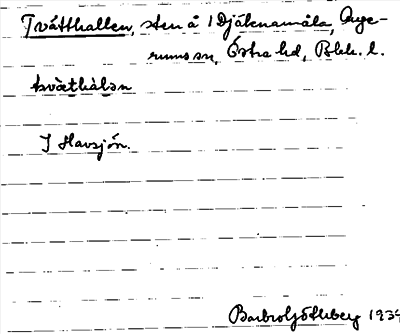 Tvätthallen, sten å 1 Djäknamåla, Ange-
rums sn, Östra hd, Blek. l.
tvæthàlən
I Havsjön.
Barbro Götheberg 1934